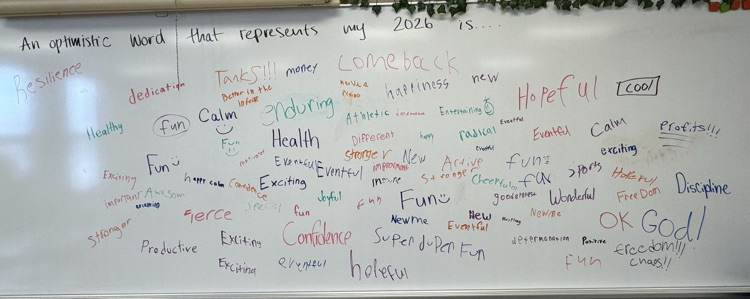 An optimistic word that represents my 2026 is....
Resilience
dedication
TanKS!!!
money
Comeback
happiness
new
Hopeful
COOL
Better in the
enduring
Athletic
Entertaining
Eventful
Healthy
fun
Calm
Fun
Health
Different
happy
radical
Eventful
Calm
Profits!!!
exciting
Fun
Eventful
Eventful
stronger
New
improvement
Active
fun
sports
Exciting
happy calm
Exciting
insure
Stronger
Cheerful
fun
Discipline
important
Awesome
Joyful
fun
Fun
Wonderful
FreeDom
fierce
special
fun
New me
New
Eventful
New me
OK
God!
Stronger
Productive
Exciting
Confidence
Super duper Fun
determination
Positive
freedom!!!
chaos!!!
Exciting
eventful
hopeful
fun